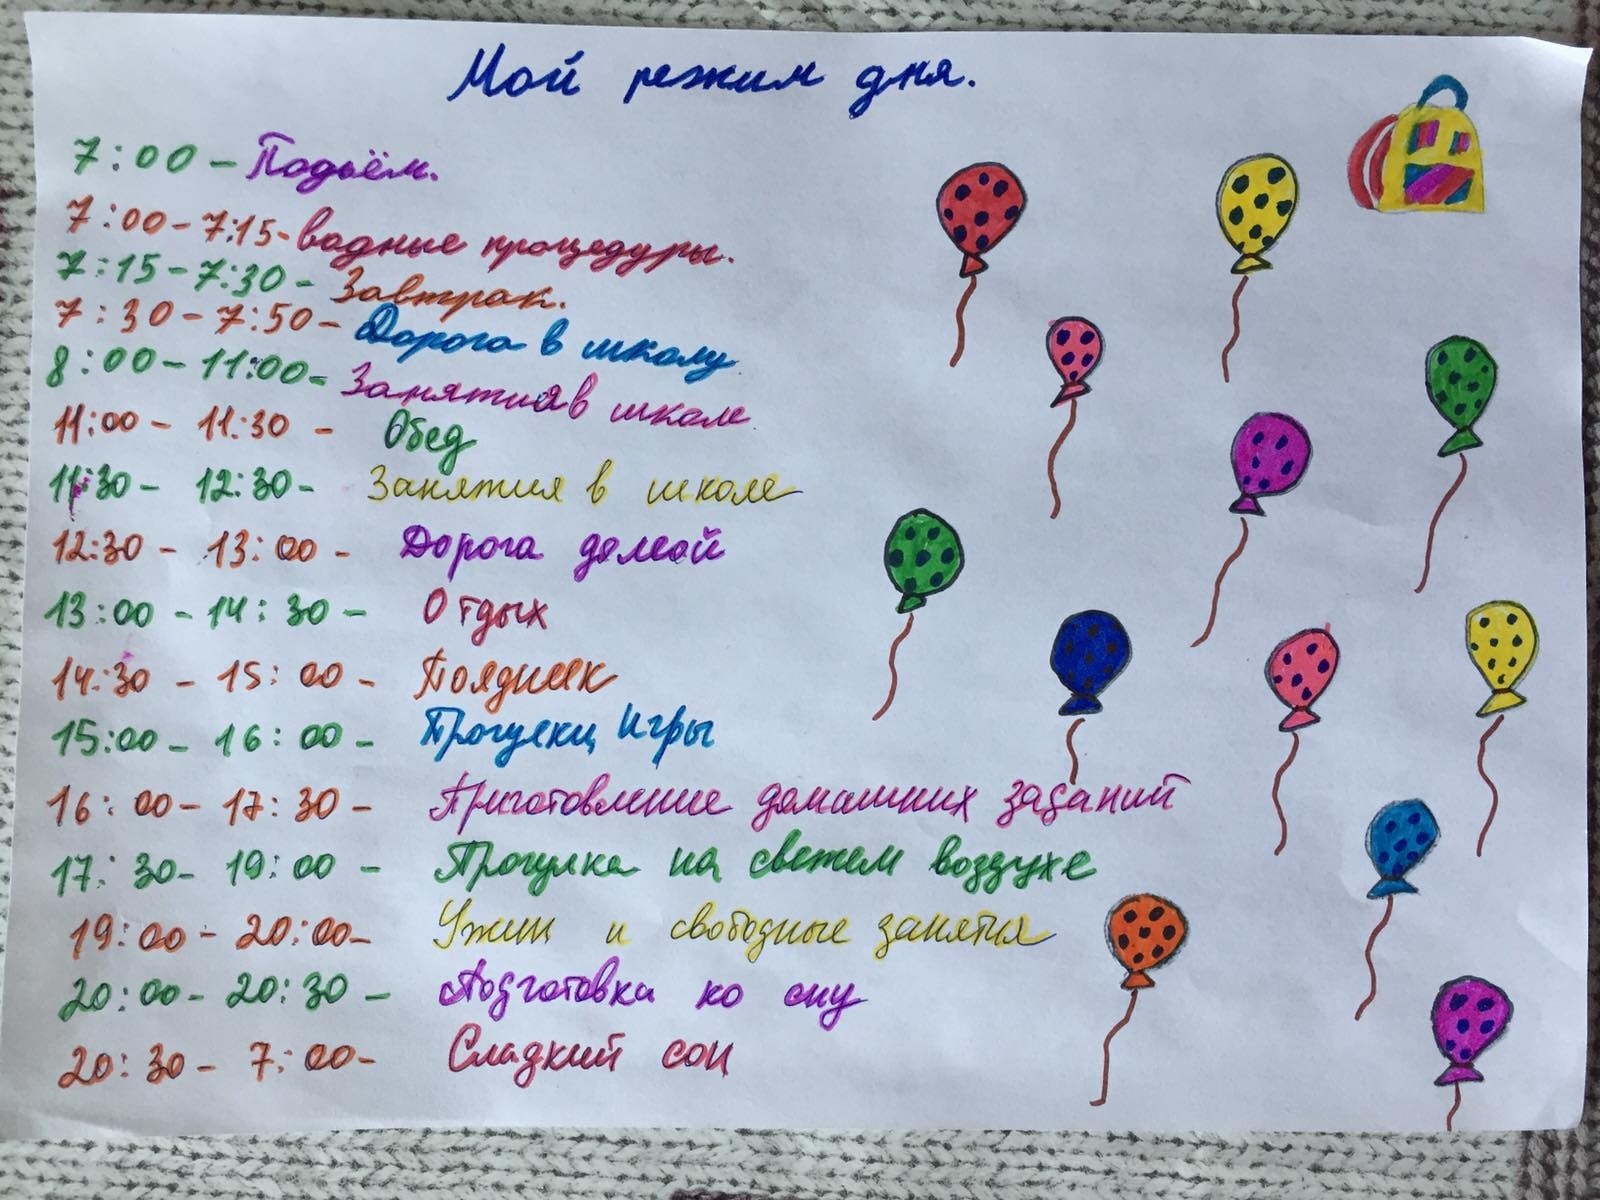 Мой режим дня.
7:00 - Подъём.
7:00 - 7:15 - водные процедуры.
7:15 - 7:30 - Завтрак.
7:30 - 7:50 - Дорога в школу
8:00 - 11:00 - Занятия в школе
11:00 - 11:30 - Обед
11:30 - 12:30 - Занятия в школе
12:30 - 13:00 - Дорога домой
13:00 - 14:30 - Отдых
14:30 - 15:00 - Полдник
15:00 - 16:00 - Прогулки Игры
16:00 - 17:30 - Приготовление домашних заданий
17:30 - 19:00 - Прогулка на свежем воздухе
19:00 - 20:00 - Ужин и свободные занятия
20:00 - 20:30 - Подготовка ко сну
20:30 - 7:00 - Сладкий сон